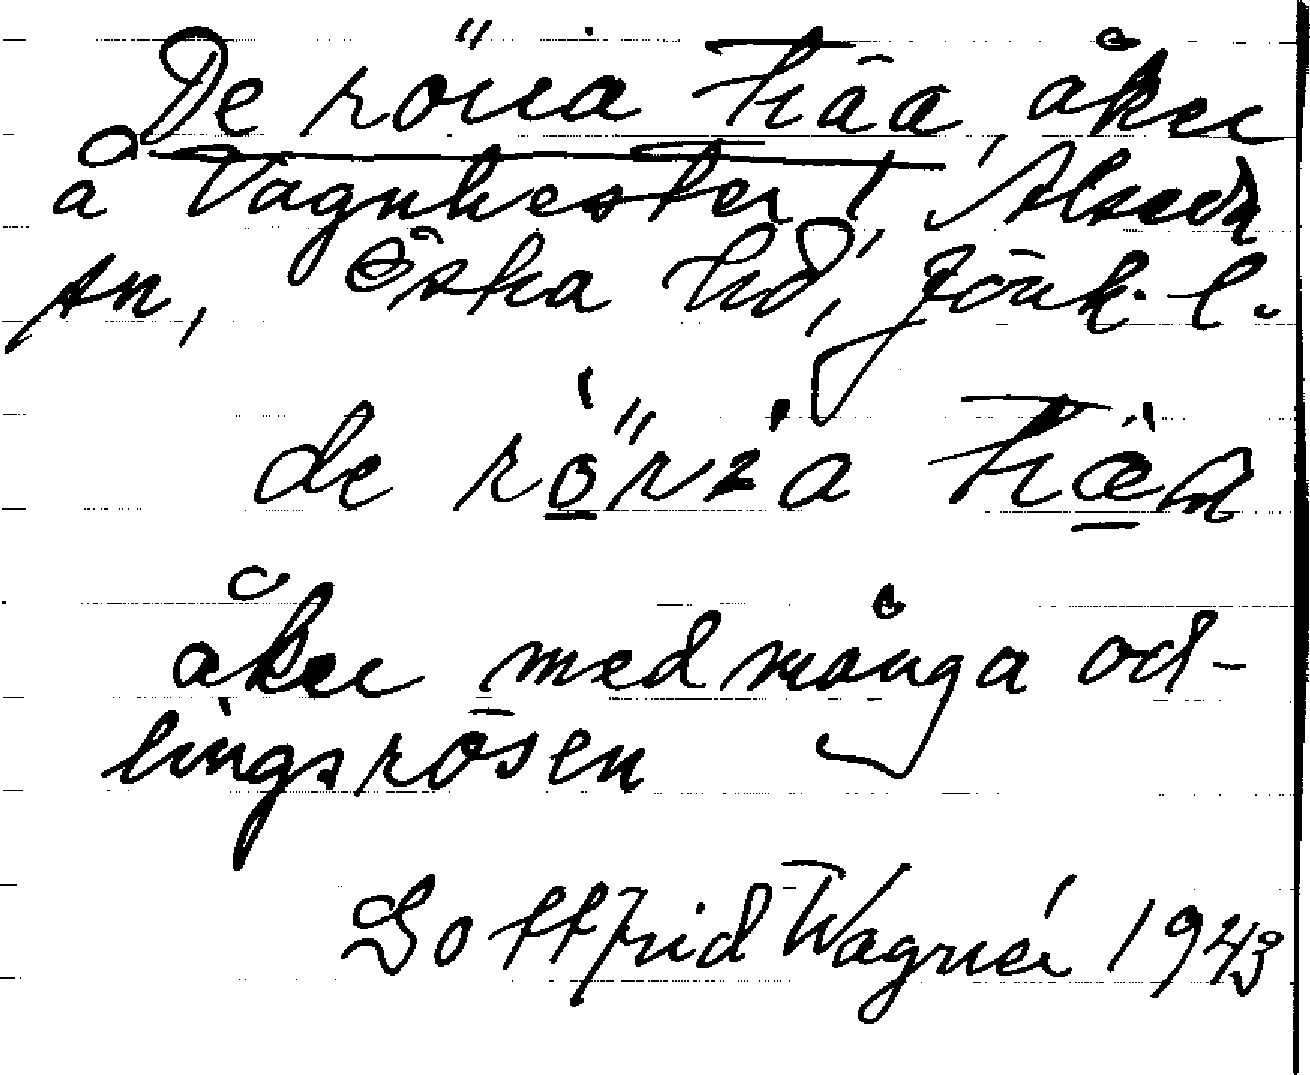 De röria träa, åker
å Vagnhester, Alseda
sn, Östra hd, Jönk. l.
de rörza träa
åker med många od-
lingsrösen
Gottfrid Wagnér 1943